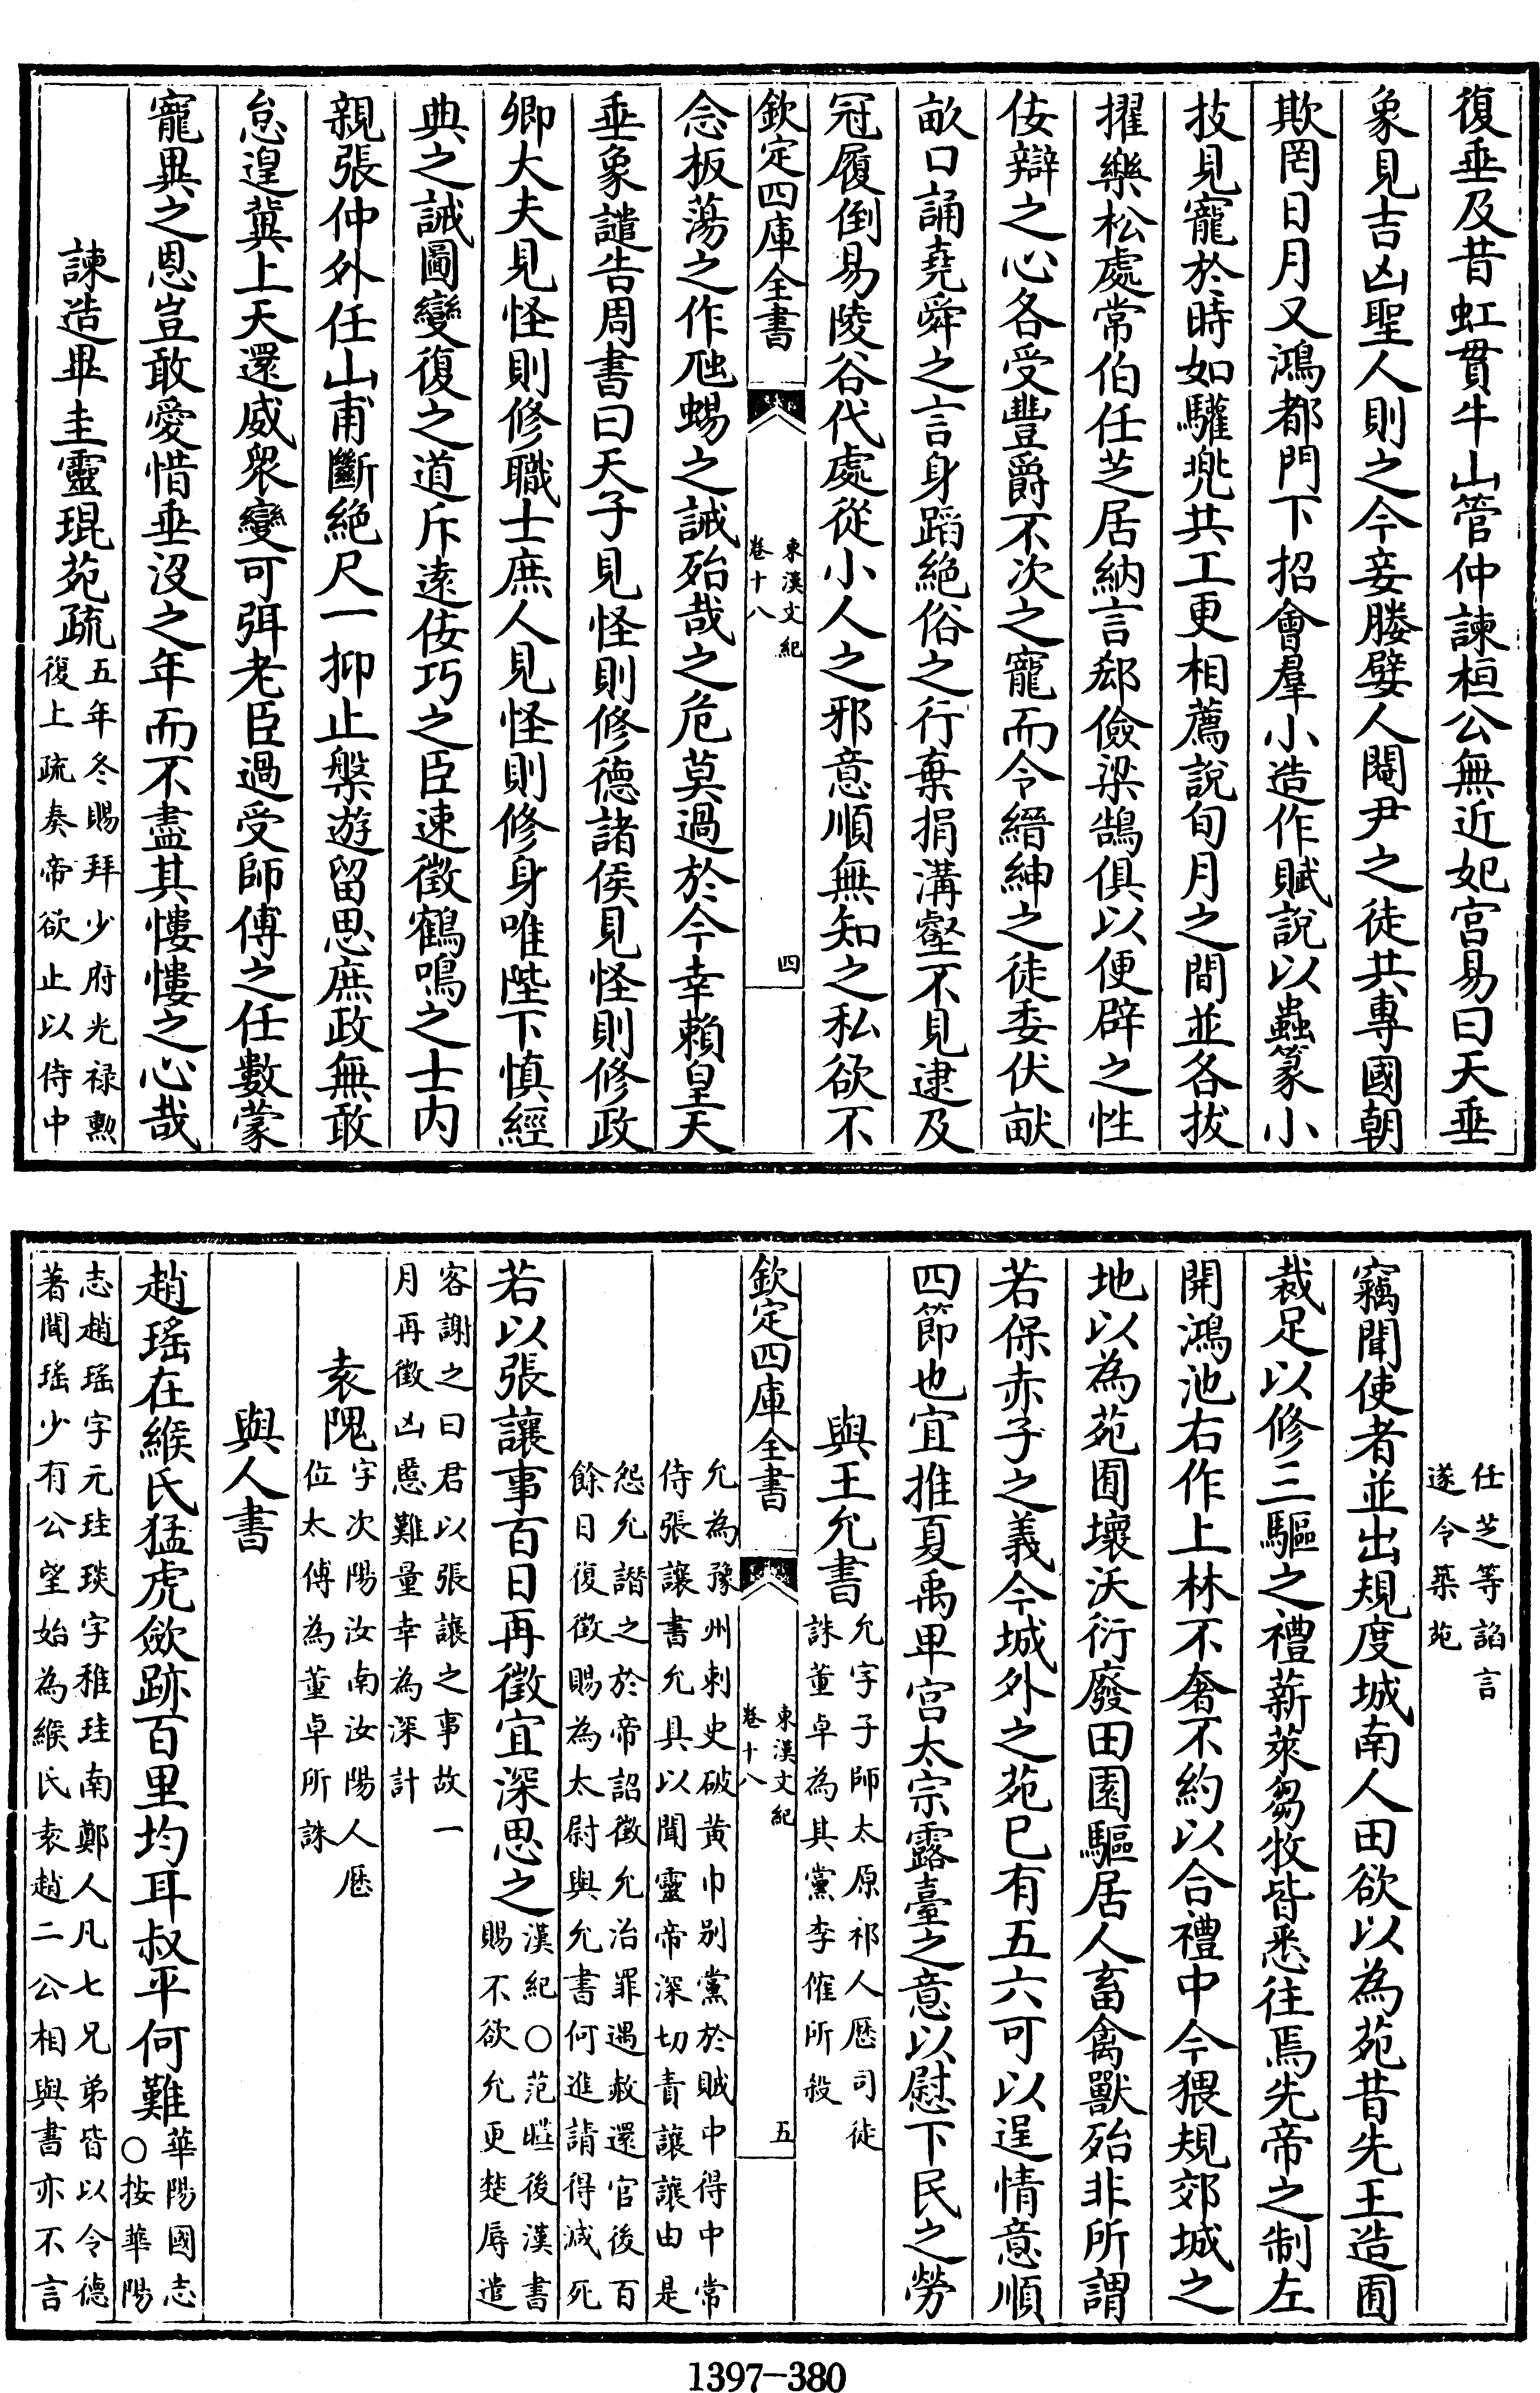 復垂及昔虹貫牛山管仲諫桓公無近妃宫易曰天垂
象見吉凶聖人則之今妾媵嬖人閹尹之徒共專國朝
欺罔日月又鴻都門下招會羣小造作賦說以蟲篆小
技見寵於時如驩兜共工更相薦說旬月之間並各拔
擢樂松處常伯任芝居納言郄儉梁鵠俱以便辟之性
佞辯之心各受豐爵不次之寵而令縉紳之徒委伏畎
畝口誦堯舜之言身蹈絶俗之行棄捐溝壑不見逮及
冠履倒易陵谷代處從小人之邪意順無知之私欲不
欽定四庫全書
東漢文紀
卷十八
四
念板蕩之作虺蜴之誡殆哉之危莫過於今幸賴皇天
垂象譴告周書曰天子見怪則修德諸侯見怪則修政
卿大夫見怪則修職士庶人見怪則修身唯陛下慎經
典之誡圖變復之道斥逺佞巧之臣速徵鶴鳴之士内
親張仲外任山甫斷絶尺一抑止槃遊留思庶政無敢
怠遑冀上天還威衆變可弭老臣過受師傅之任數蒙
寵異之恩豈敢愛惜垂沒之年而不盡其慺慺之心哉
諫造畢圭靈琨苑疏
五年冬賜拜少府光禄勲
復上疏奏帝欲止以侍中
任芝等諂言
遂令築苑
竊聞使者並出規度城南人田欲以為苑昔先王造囿
裁足以修三驅之禮薪萊芻牧皆悉往焉先帝之制左
開鴻池右作上林不奢不約以合禮中今猥規郊城之
地以為苑囿壞沃衍廢田園驅居人畜禽獸殆非所謂
若保赤子之義今城外之苑已有五六可以逞情意順
四節也宜推夏禹卑宫太宗露臺之意以慰下民之勞
與王允書
允字子師太原祁人歴司徒
誅董卓為其黨李傕所殺
欽定四庫全書
東漢文紀
卷十八
五
允為豫州刺史破黄巾别黨於賊中得中常
侍張讓書允具以聞靈帝深切責讓讓由是
怨允譖之於帝詔徵允治罪遇赦還官後百
餘日復徵賜為太尉與允書何進請得減死
若以張讓事百日再徵宜深思之
漢紀○范曄後漢書
賜不欲允更楚辱遣
客謝之曰君以張讓之事故一
月再徵凶慝難量幸為深計
袁隗
字次陽汝南汝陽人歴
位太傅為董卓所誅
與人書
趙瑤在緱氏猛虎歛跡百里均耳叔平何難
華陽國志
○按華陽
志趙瑤字元珪琰字稚珪南鄭人凡七兄弟皆以令德
著聞瑤少有公望始為緱氏袁趙二公相與書亦不言
1397-380